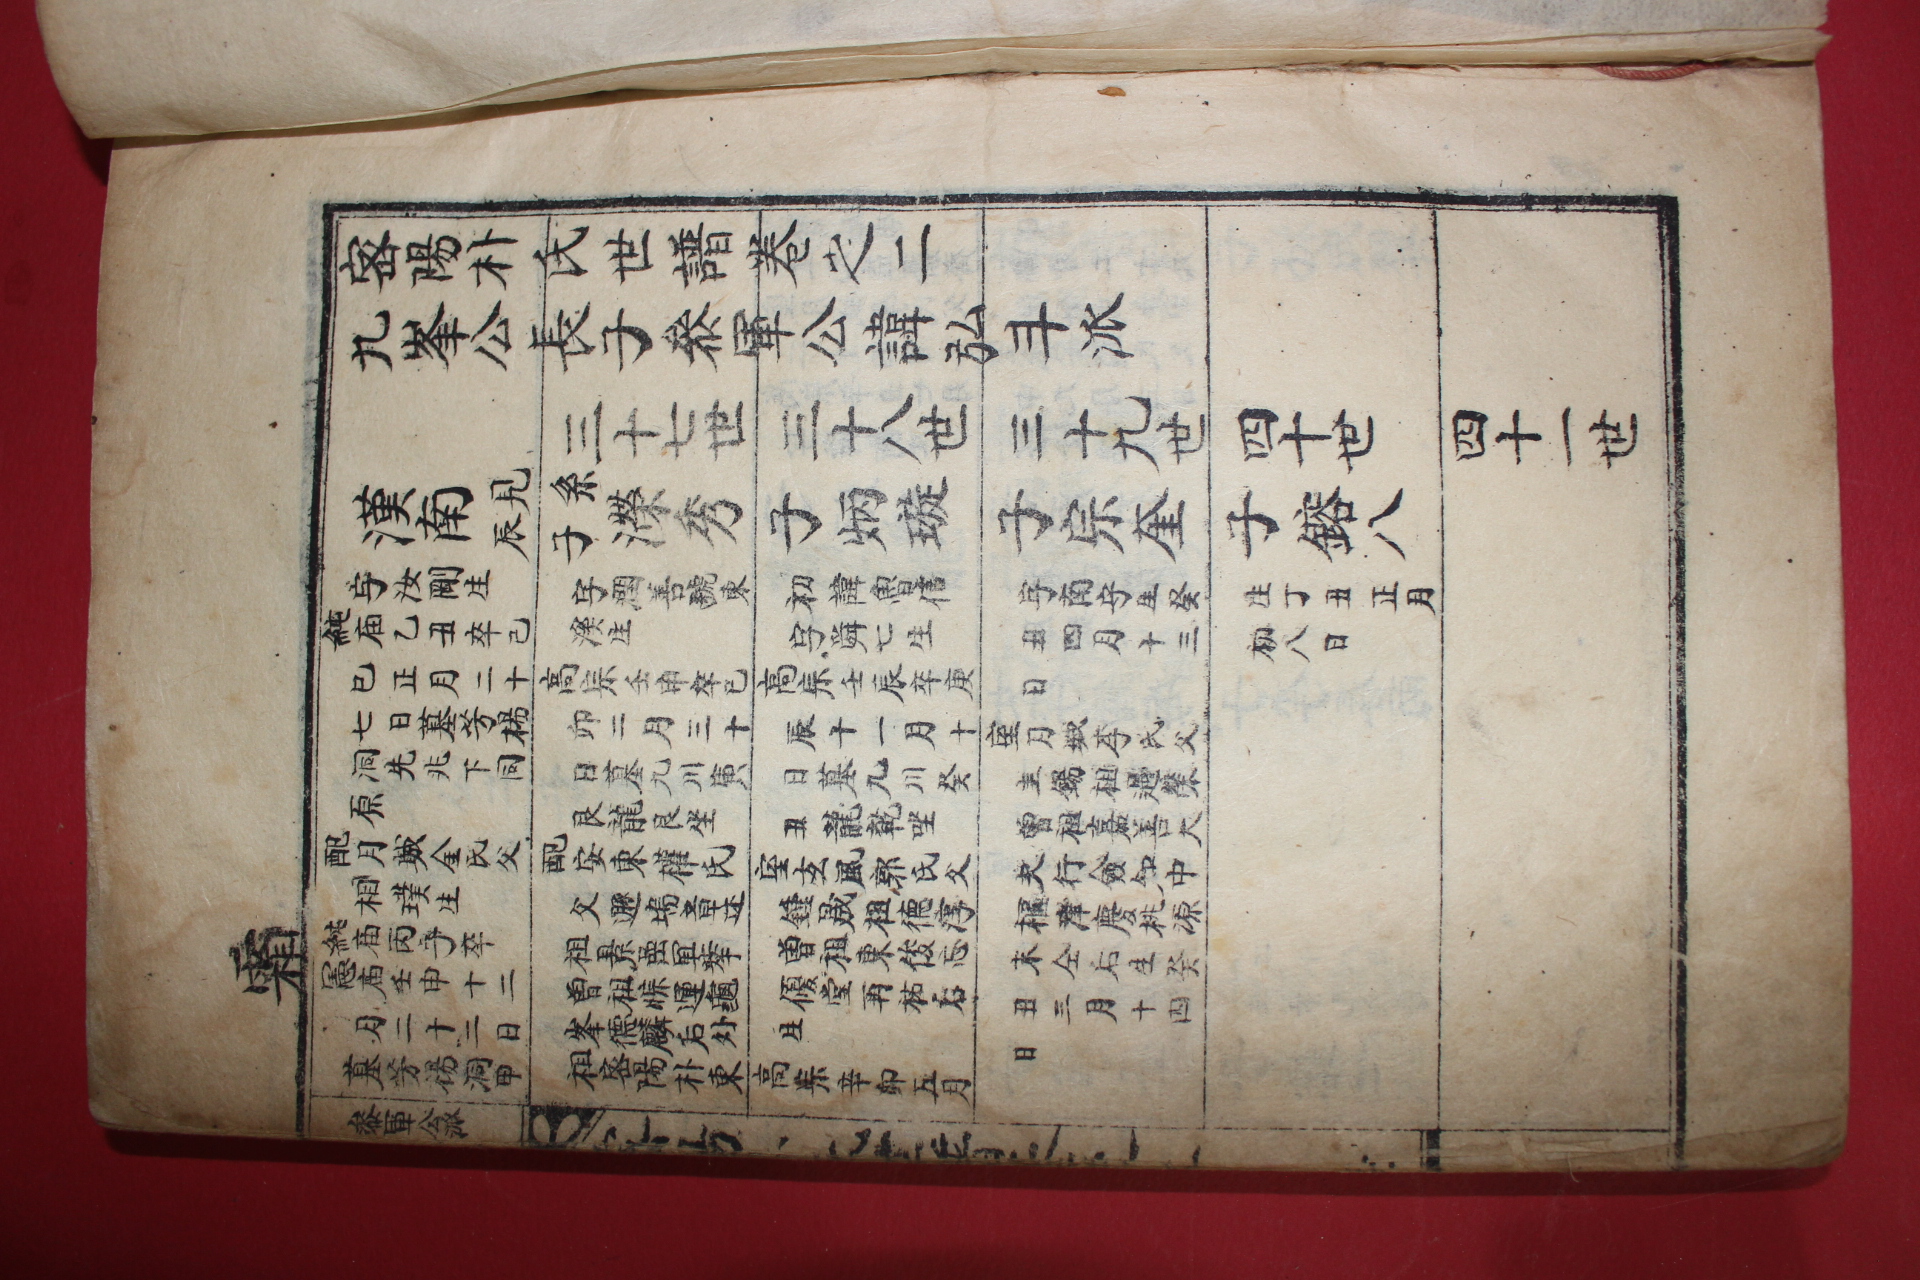 霜
密陽朴氏世譜卷之二
九峯公長子叅軍公諱弘斗派
三十七世
三十八世
三十九世
四十世
四十一世
漢南
見辰
字汝剛生
純庙乙丑卒己
巳正月二十
七日墓芳楊
洞先兆下同
原
配月城金氏父
相璞生
純庙丙子卒
憲庙壬申十二
月二十二日
墓芳楊洞甲
系子濚秀
字潤善號東
溪生
高宗壬申卒己
卯二月三十
日墓九川寅
艮龍艮坐
配安東權氏
父遯塢章述
祖景
曾祖
峯德麟后外
祖密陽朴東
子炳璇
初諱魯信
字舜七生
高宗壬辰卒庚
辰十一月十
日墓九川癸
丑龍乾坐
室玄風郭氏父
鍾晟祖德淳
曾祖東俊忘
優堂再祐后
生
高宗辛卯五月
子宗奎
字南守生癸
丑四月十三
日
室月城李氏父
圭錫祖遇榮
曾祖嘉善大
夫行僉知中
樞瀣慶桃源
末仝后生癸
丑三月十四
日
子鎔八
生丁丑正月
初八日
叅軍公派